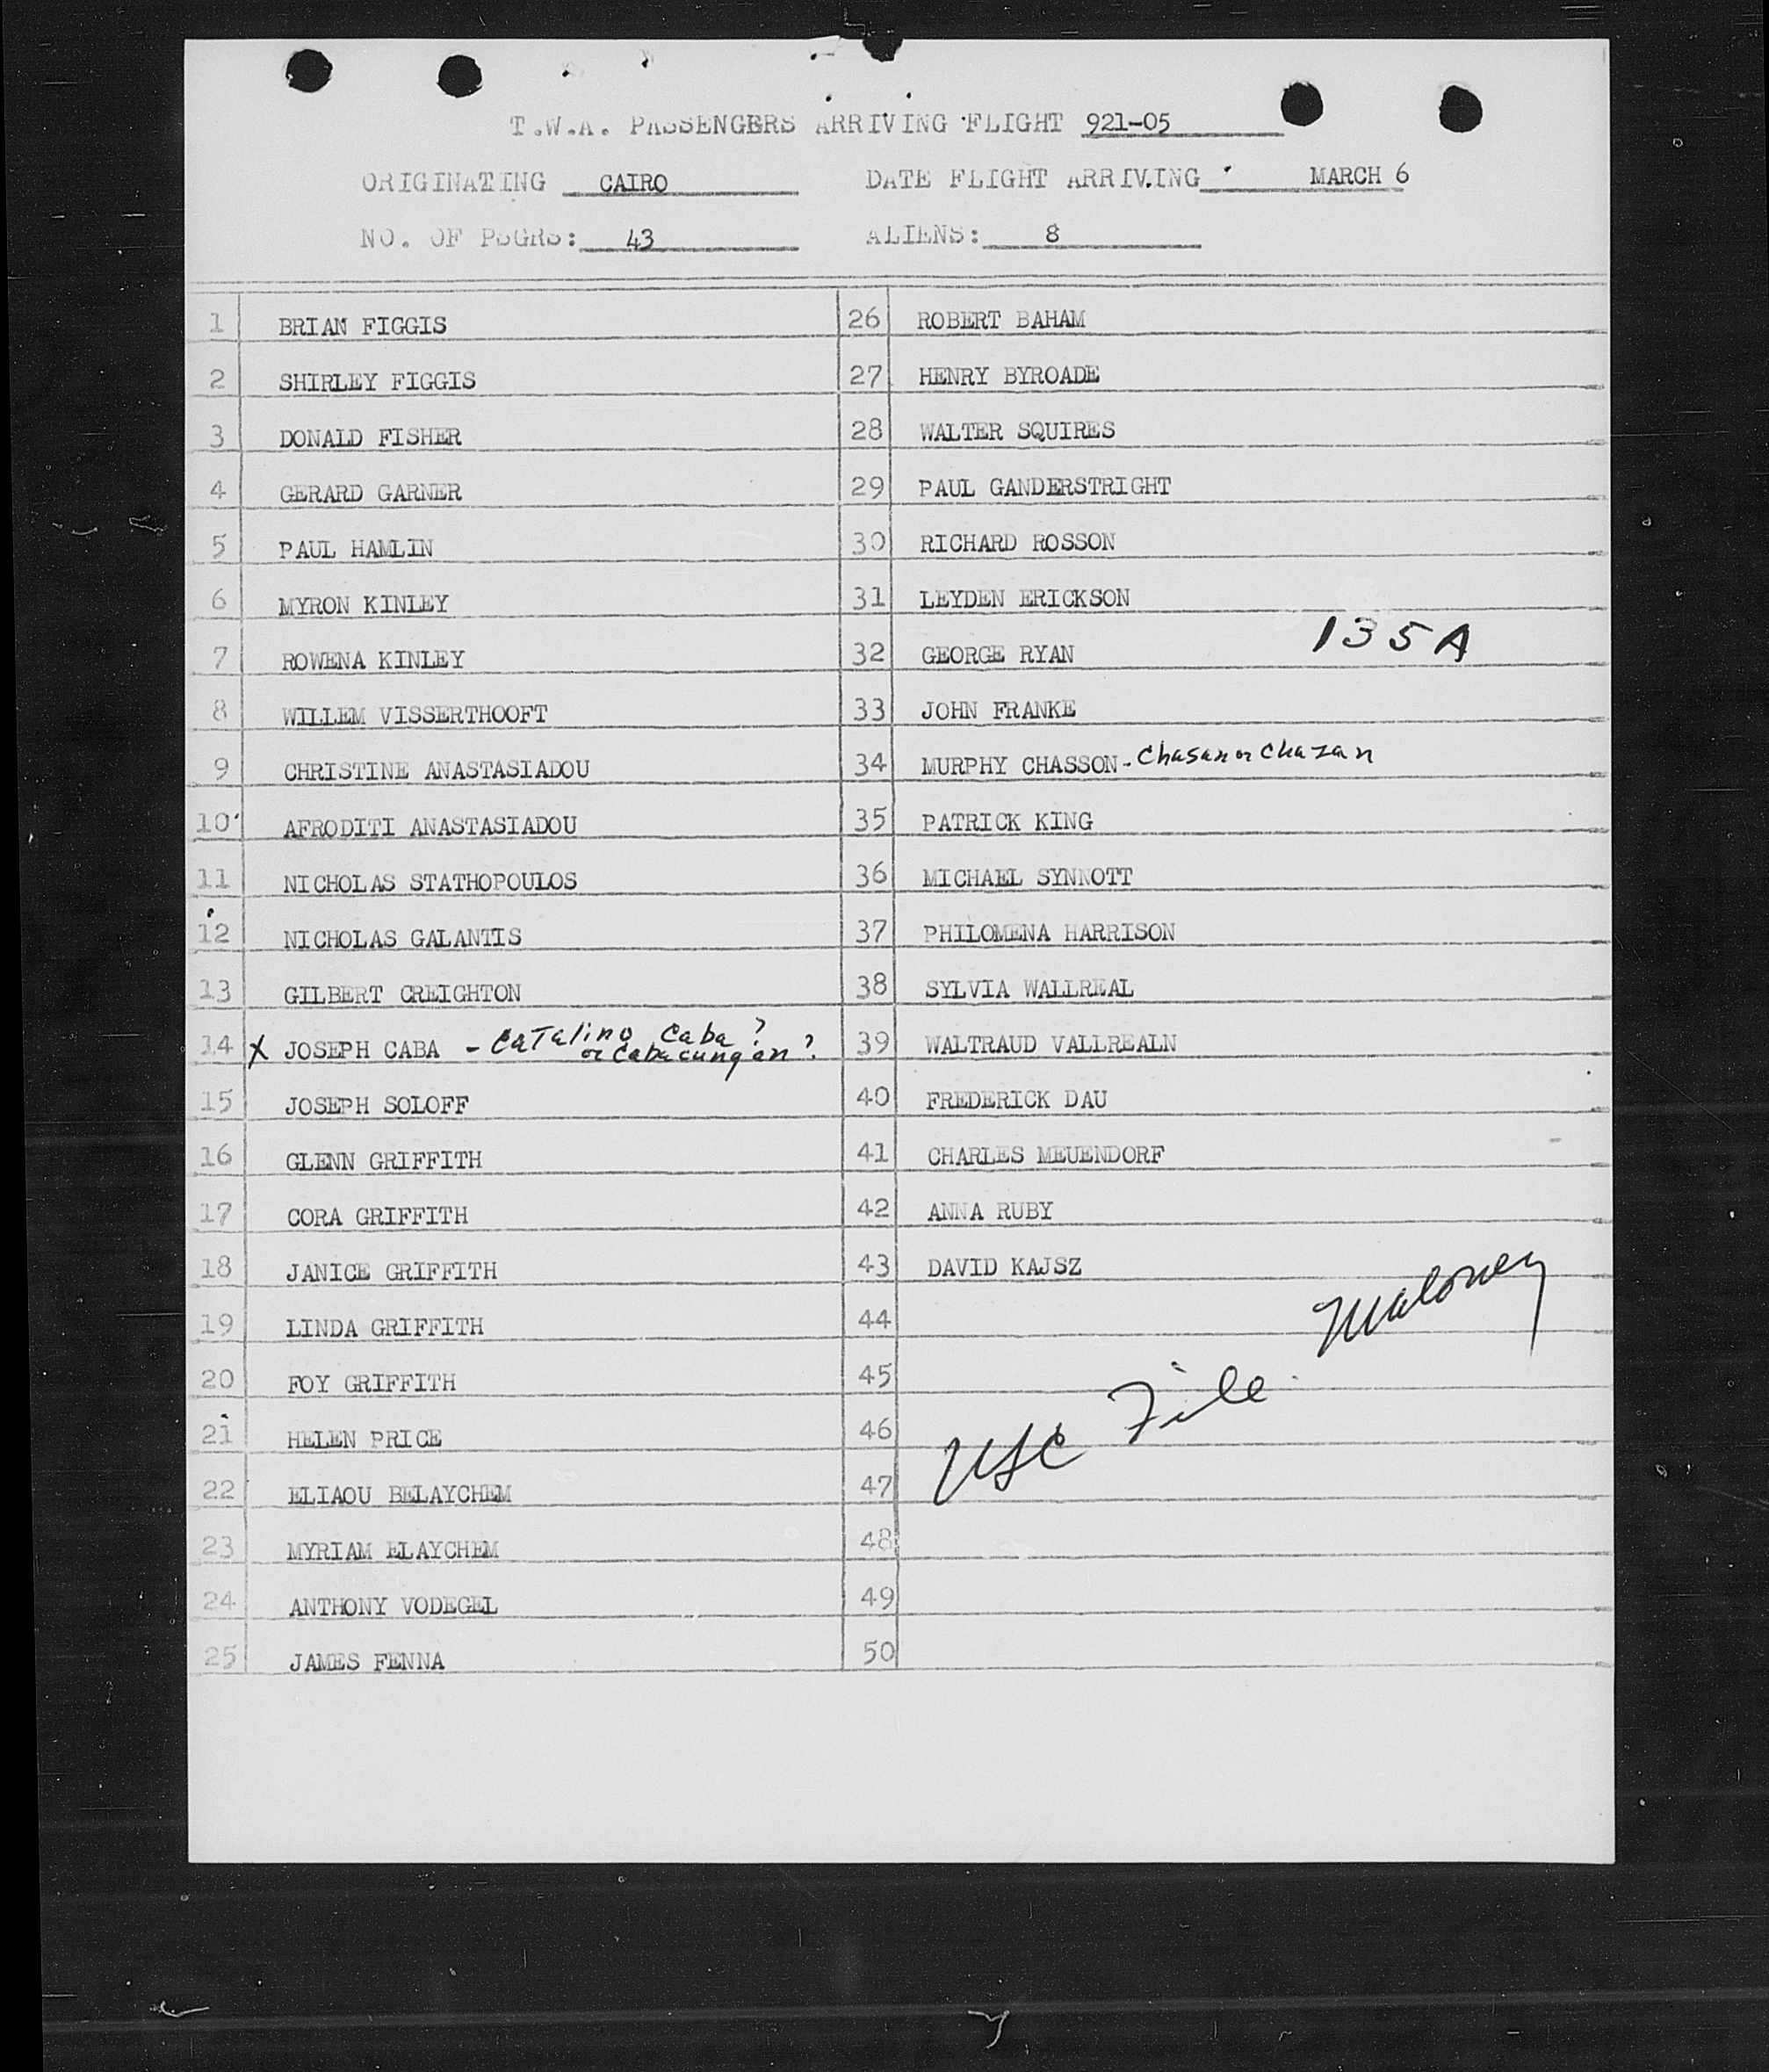 T.W.A. PASSENGERS ARRIVING FLIGHT 921-05
ORIGINATING CAIRO DATE FLIGHT ARRIVING MARCH 6
NO. OF PSGRS: 43 ALIENS: 8
1 BRIAN FIGGIS
2 SHIRLEY FIGGIS
3 DONALD FISHER
4 GERARD GARNER
5 PAUL HAMLIN
6 MYRON KINLEY
7 ROWENA KINLEY
8 WILLEM VISSERTHOOFT
9 CHRISTINE ANASTASIADOU
10 AFRODITI ANASTASIADOU
11 NICHOLAS STATHOPOULOS
12 NICHOLAS GALANTIS
13 GILBERT CREIGHTON
14 X JOSEPH CABA - Catalino Caba ?
or Cabacungan ?
15 JOSEPH SOLOFF
16 GLENN GRIFFITH
17 CORA GRIFFITH
18 JANICE GRIFFITH
19 LINDA GRIFFITH
20 FOY GRIFFITH
21 HELEN PRICE
22 ELIAOU BELAYCHEM
23 MYRIAM ELAYCHEM
24 ANTHONY VODEGEL
25 JAMES FENNA
26 ROBERT BAHAM
27 HENRY BYROADE
28 WALTER SQUIRES
29 PAUL GANDERSTRIGHT
30 RICHARD ROSSON
31 LEYDEN ERICKSON
135A
32 GEORGE RYAN
33 JOHN FRANKE
34 MURPHY CHASSON - Chasan or Chazan
35 PATRICK KING
36 MICHAEL SYNNOTT
37 PHILOMENA HARRISON
38 SYLVIA WALLREAL
39 WALTRAUD VALLREALN
40 FREDERICK DAU
41 CHARLES MEUENDORF
42 ANNA RUBY
43 DAVID KAJSZ
44
Maloney
45
46
USC File
47
48
49
50